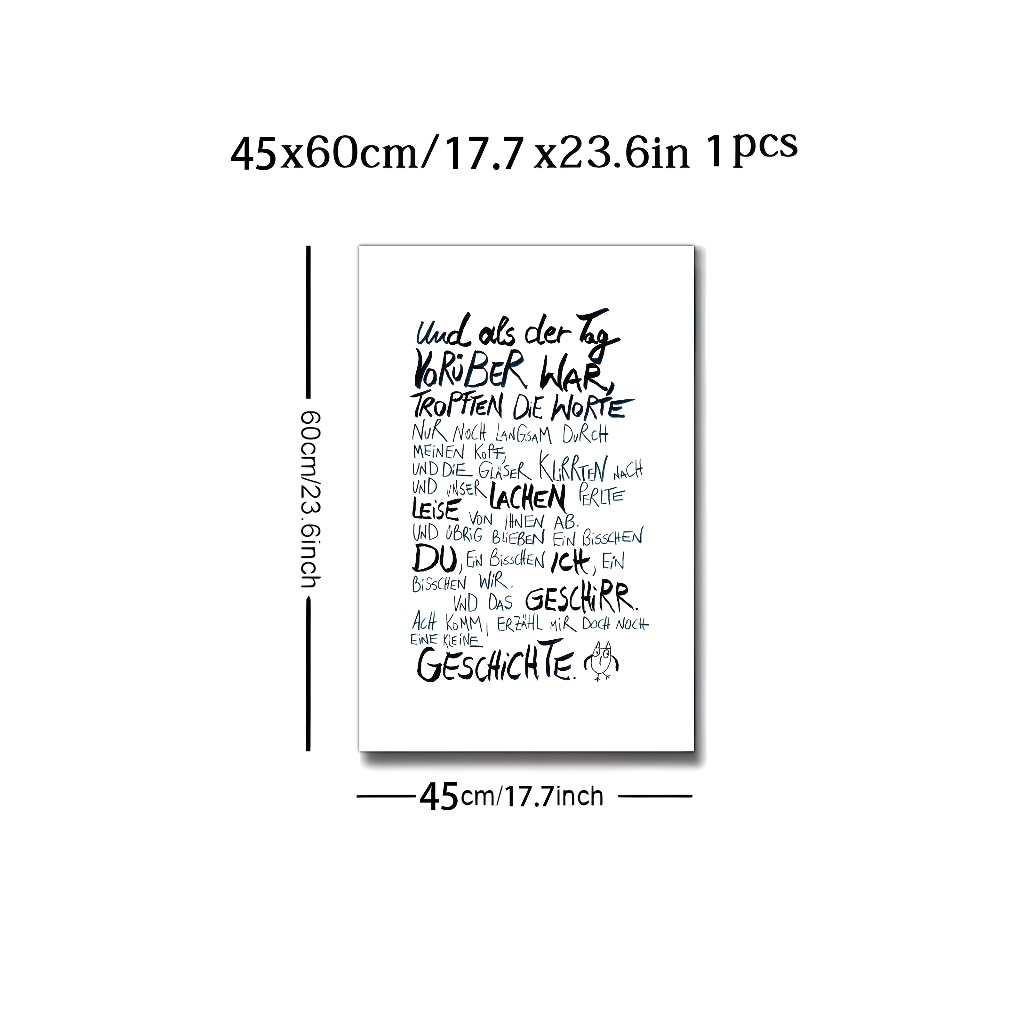 45x60cm/17.7 x23.6in 1pcs
60cm/23.6inch
Und als der Tag
VORÜBER WAR,
TROPFTEN DIE WORTE
NUR NOCH LANGSAM DURCH
MEINEN KOPF,
UND DIE GLÄSER KLIRRTEN NACH
UND UNSER LACHEN PERLTE
LEISE VON IHNEN AB.
UND ÜBRIG BLIEBEN EIN BISSCHEN
DU, EIN BISSCHEN ICH, EIN
BISSCHEN WIR.
UND DAS GESCHIRR.
ACH KOMM, ERZÄHL MIR DOCH NOCH
EINE KLEINE
GESCHICHTE.
45cm/17.7inch